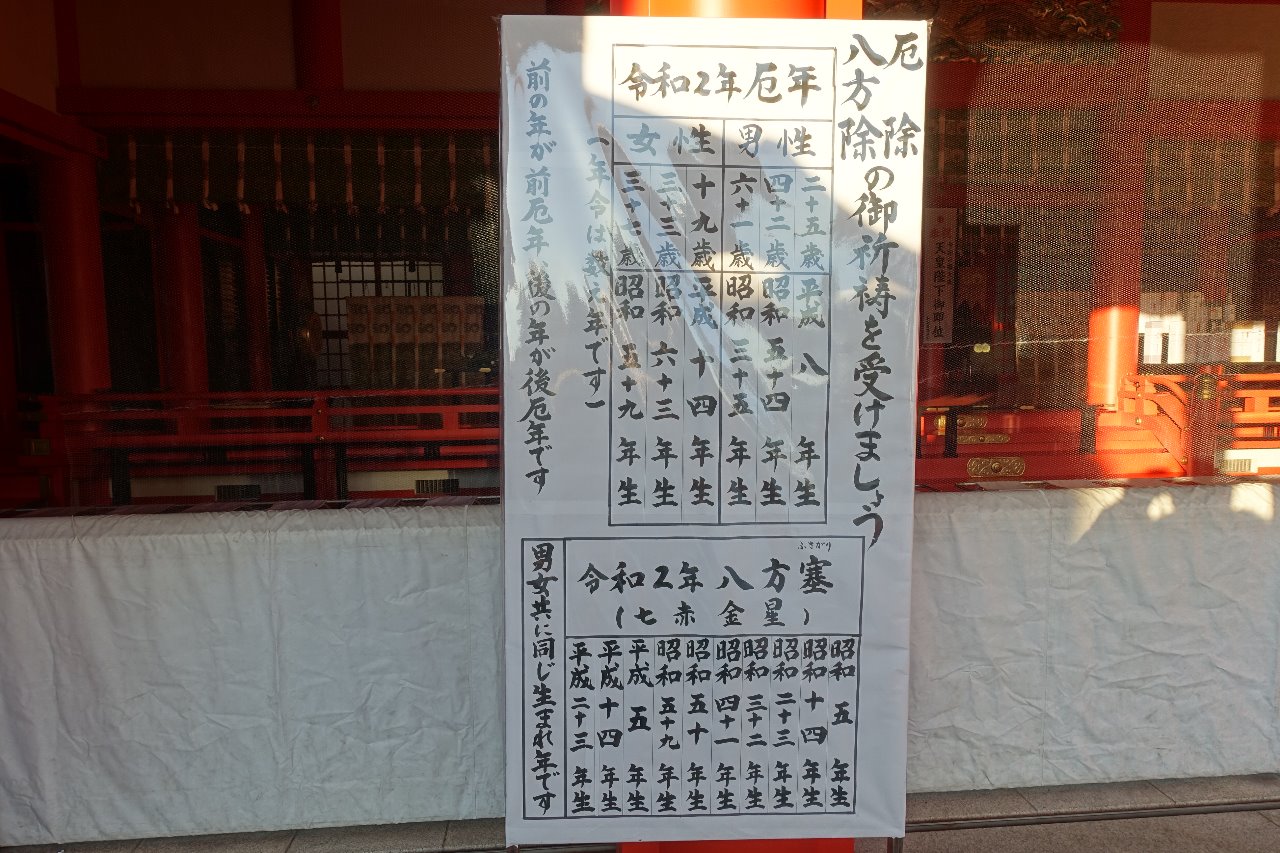 厄除
八方除の御祈祷を受けましょう
令和2年厄年
男性
二十五歳 平成八年生
四十二歳 昭和五十四年生
六十一歳 昭和三十五年生
女性
十九歳 平成十四年生
三十三歳 昭和六十三年生
三十七歳 昭和五十九年生
一年令は数え年です一
前の年が前厄年、後の年が後厄年です
ふさがり
令和2年八方塞
(七赤金星)
昭和五年生
昭和十四年生
昭和二十三年生
昭和三十二年生
昭和四十一年生
昭和五十年生
昭和五十九年生
平成五年生
平成十四年生
平成二十三年生
男女共に同じ生まれ年です
天皇陛下御即位